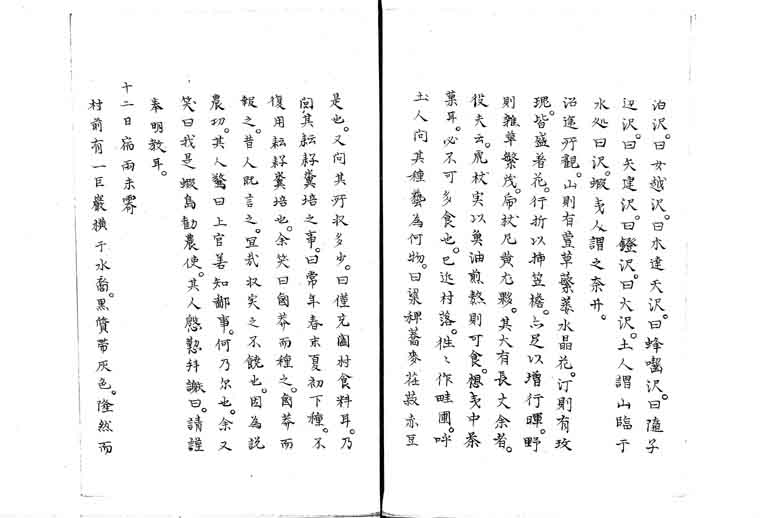 泊沢。曰女越沢。曰水達天沢。曰蜂㘅沢。曰隨子
辺沢。曰矢建沢。曰鐙沢。曰大沢。土人謂山臨于
水処曰沢。蝦夷人謂之奈井。
沿道所観。山則有萱草蘩蔞水晶花。汀則有玫
瑰。皆盛着花。行折以挿笠檐。亦足以増行暉。野
則雑草繁茂。虎杖凡黄尤夥。其大有長丈余者。
役夫云。虎杖実以魚油煎熬則可食。想夷中茶
菓耳。必不可多食也。已近村落。往々作畦圃。呼
土人向其種藝為何物。曰梁稗蕎麦荏菽赤豆
是也。又向其所収多少。曰僅充闔村食料耳。乃
問其耘耔糞培之事。曰常年春末夏初下種。不
復用耘耔糞培也。余笑曰鹵莽而種之。鹵莽而
報之。昔人既言之。宜哉収実之不饒也。因為説
農功。其人驚曰上官善知鄙事。何乃尓也。余又
笑曰我是蝦島勧農使。其人慇懃拝謝曰。請謹
奉明教耳。
十二日宿雨未霽
村前有一巨巌横于水裔。黒質帯灰色。隆然而